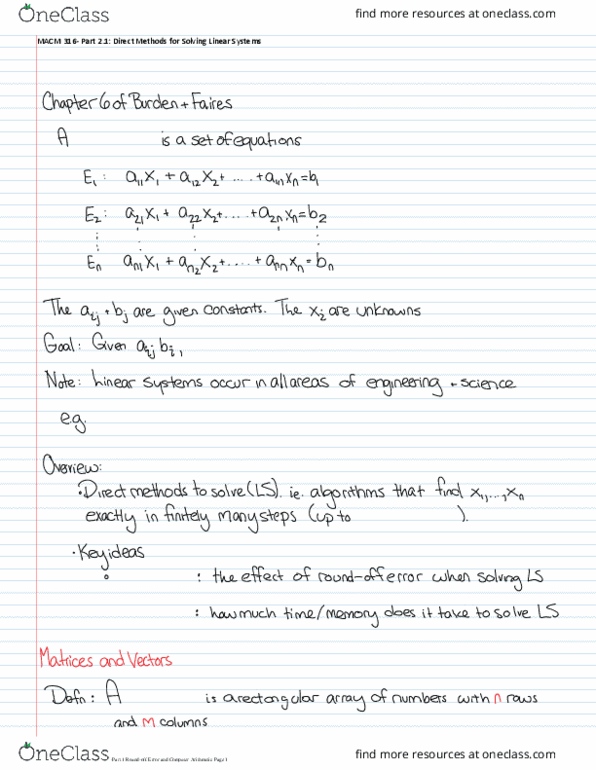 OneClass
find more resources at oneclass.com
MACM 316- Part 2.1: Direct Methods for Solving Linear Systems
Chapter 6 of Burden + Faires
A is a set of equations
E₁ : a₁₁x₁ + a₁₂x₂ + .... + a₁ₙxₙ = b₁
E₂ : a₂₁x₁ + a₂₂x₂ + .... + a₂ₙxₙ = b₂
⋮ ⋮ ⋮ ⋮ ⋮
Eₙ aₙ₁x₁ + aₙ₂x₂ + .... + aₙₙxₙ = bₙ
The aᵢⱼ + bⱼ are given constants. The xᵢ are unknowns
Goal: Given aᵢⱼ bᵢ,
Note: Linear systems occur in all areas of engineering + science
e.g.
Overview:
• Direct methods to solve (LS). ie. algorithms that find x₁,...,xₙ
exactly in finitely many steps (up to ).
• Key ideas
: the effect of round-off error when solving LS
: how much time/memory does it take to solve LS
Matrices and Vectors
Defn: A is a rectangular array of numbers with n rows
and m columns
OneClass
Part 1 Round-off Error and Computer Arithmetic Page 1
find more resources at oneclass.com